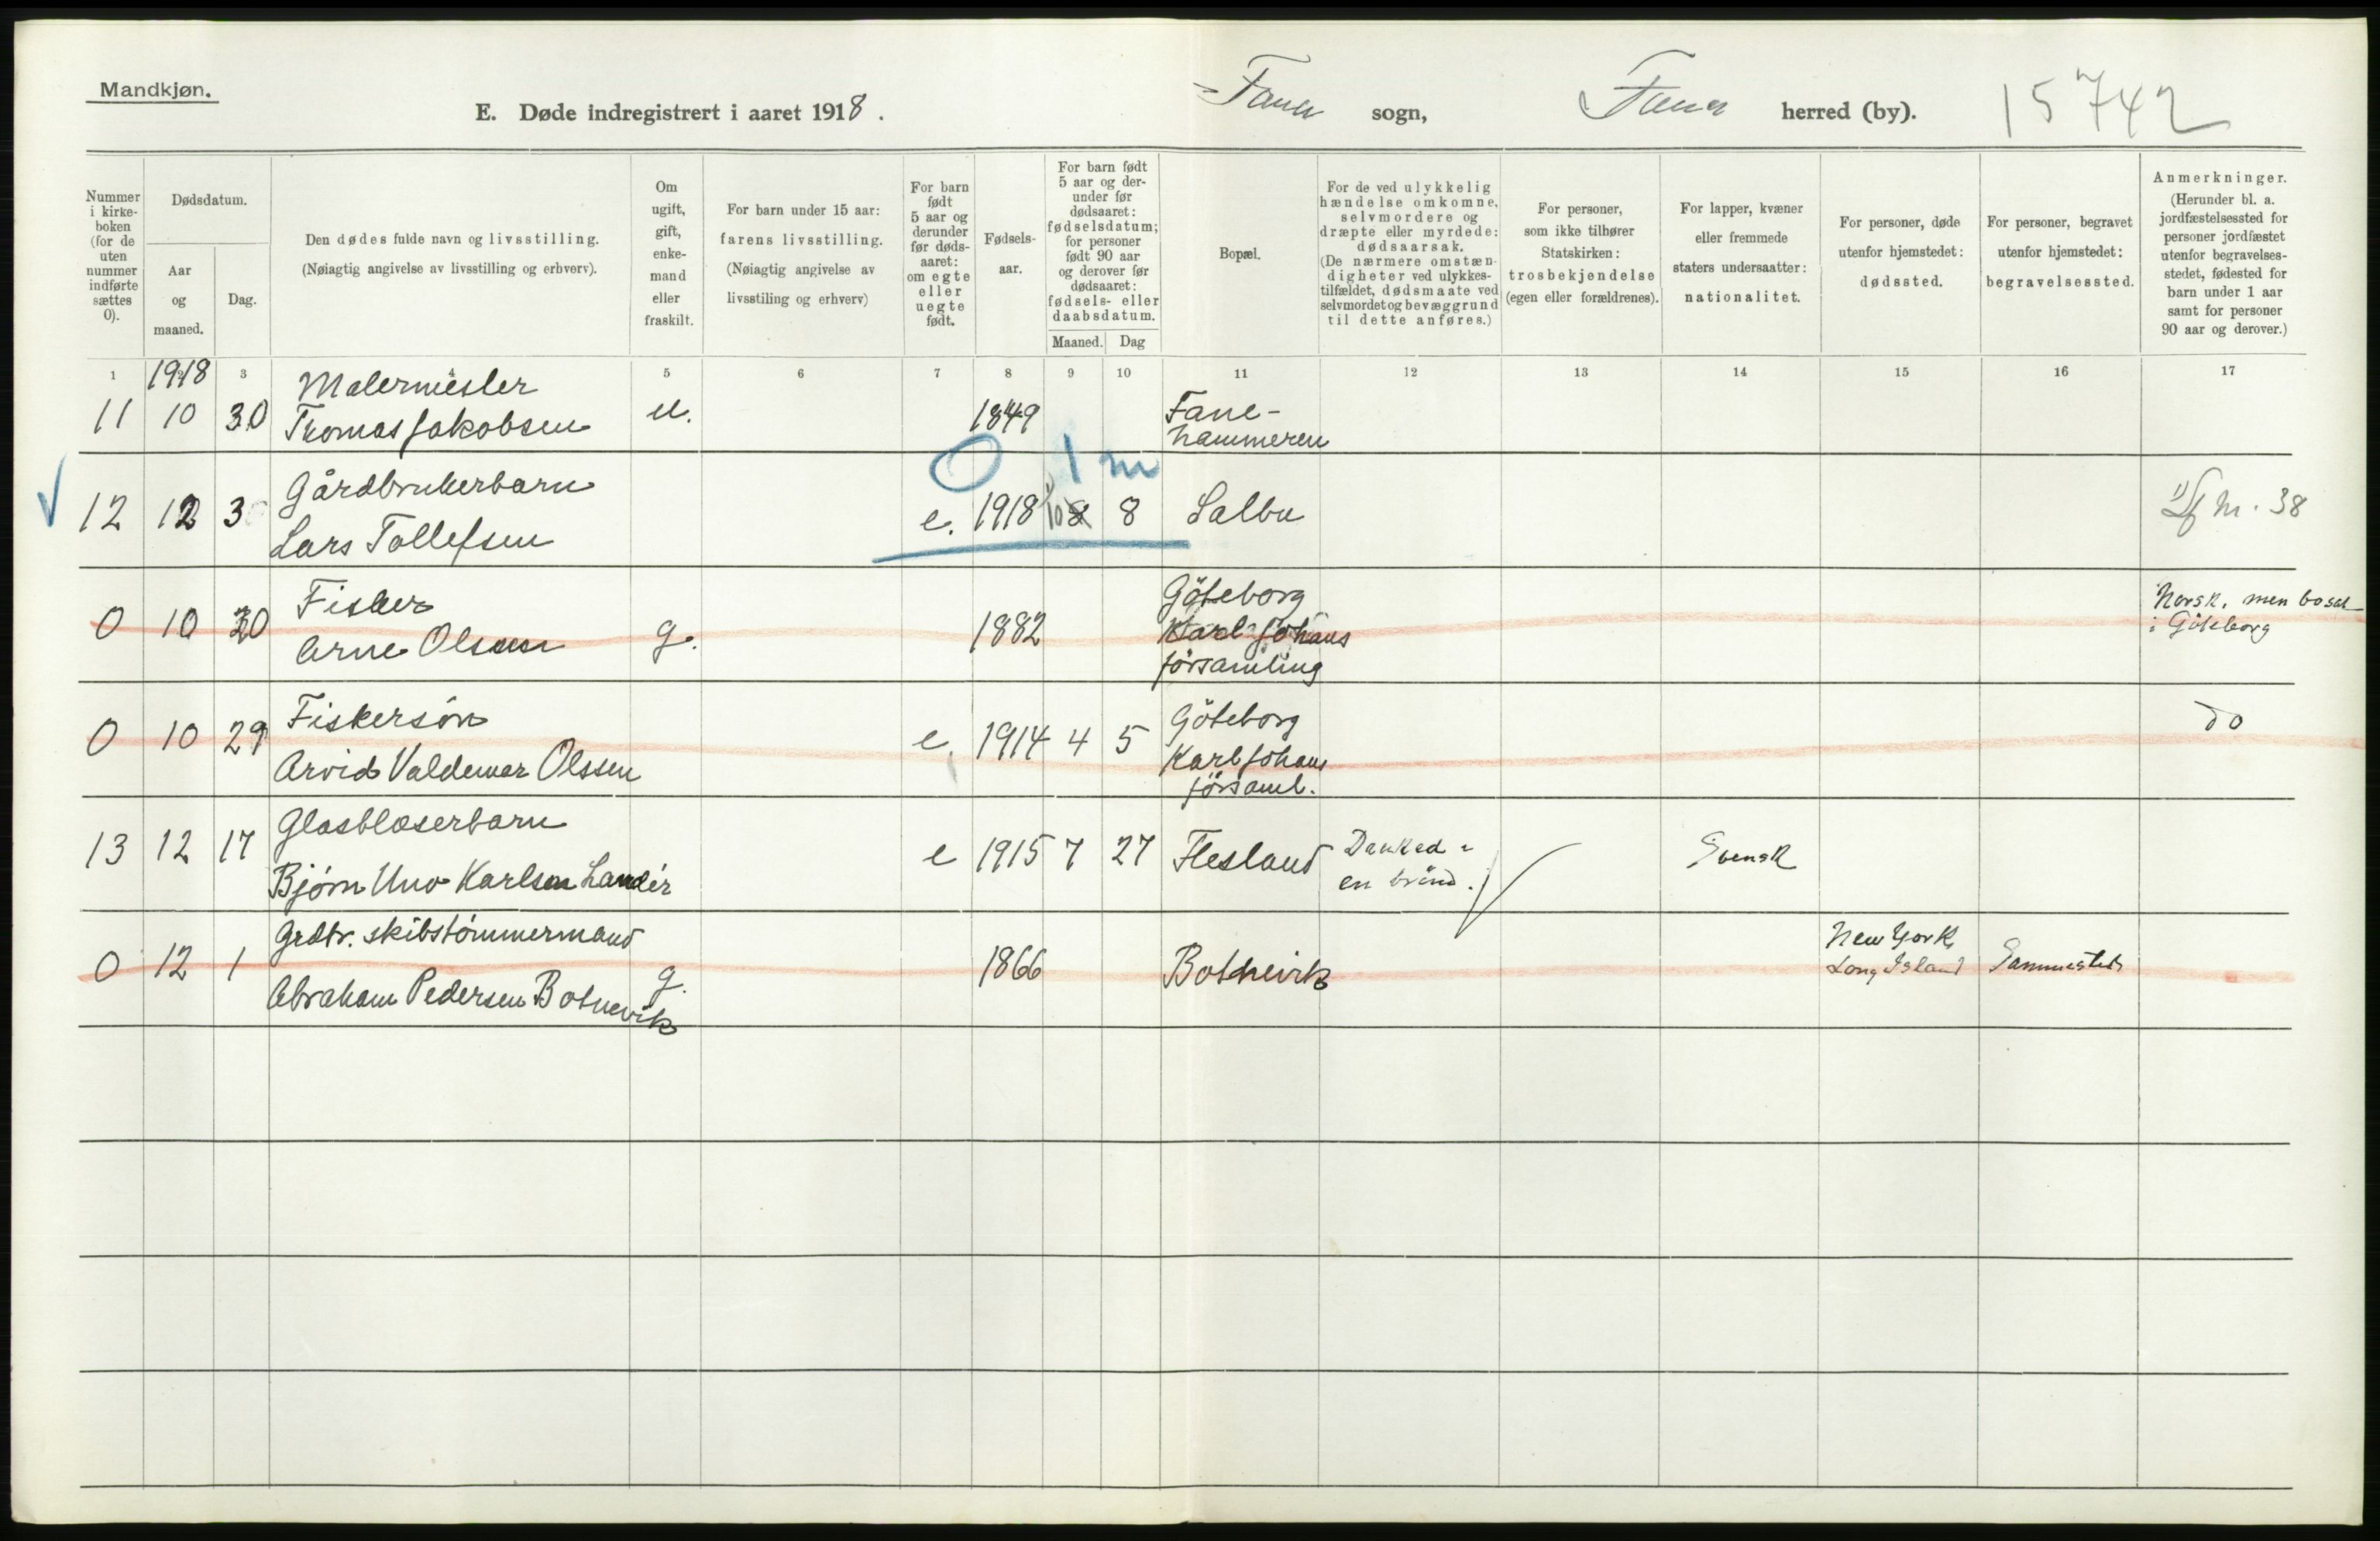 Mandkjøn.
E. Døde indregistrert i aaret 1918.
Fana sogn,
Fana herred (by).
15742
Nummer i kirke-boken (for de uten nummer indførte sættes 0).
Dødsdatum.
Aar og maaned.
Dag.
Den dødes fulde navn og livsstilling.
(Nøiagtig angivelse av livsstilling og erhverv).
Om ugift, gift, enke-mand eller fraskilt.
For barn under 15 aar:
farens livsstilling.
(Nøiagtig angivelse av
livsstiling og erhverv)
For barn født 5 aar og derunder før døds-aaret: om egte eller uegte født.
Fødsels-aar.
For barn født 5 aar og der-under før dødsaaret: fødselsdatum; for personer født 90 aar og derover før dødsaaret: fødsels- eller daabsdatum.
Maaned. Dag
Bopæl.
For de ved ulykkelig hændelse omkomne, selvmordere og dræpte eller myrdede: dødsaarsak. (De nærmere omstæn-digheter ved ulykkes-tilfældet, dødsmaate ved selvmordet og bevæggrund til dette anføres.)
For personer, som ikke tilhører Statskirken: trosbekjendelse (egen eller forældrenes).
For lapper, kvæner eller fremmede staters undersaatter: nationalitet.
For personer, døde utenfor hjemstedet: dødssted.
For personer, begravet utenfor hjemstedet: begravelsessted.
Anmerkninger.
(Herunder bl. a. jordfæstelsessted for personer jordfæstet utenfor begravelses-stedet, fødested for barn under 1 aar samt for personer 90 aar og derover.)
1 1918 3 5 6 7 8 9 10 11 12 13 14 15 16 17
Malermester
11 10 30 Thomas Jakobsen u. 1849 Fane-
hammeren
0 1 m
Gårdbrukerbarn
12 12 3 Lars Tollefsen e. 1918 10 8 8 Salbu m. 38
Fisker Göteborg Norsk, men bosat
0 10 30 Arne Olsen g. 1882 Karl Johans i Göteborg
församling
Fiskersøn Göteborg do
0 10 29 Arvid Valdemar Olssen e. 1914 4 5 Karl Johans
församl.
Glasblaserbarn
13 12 17 Bjørn Uno Karlsen Landér e 1915 7 27 Flesland Drukned i Svensk
en brönd.
Grdbr. skibstømmermand New York
0 12 1 Abraham Pedersen Botnevik g. 1866 Botnevik Long Island Sammesteds